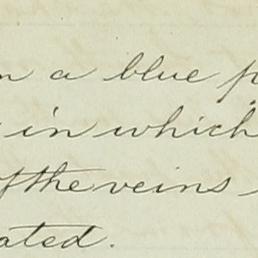 n a blue p
in which
of the veins
ated.